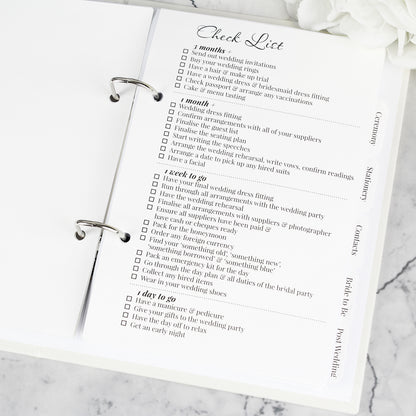 Check List
1 months +
Send out wedding invitations
Buy your wedding rings
Have a hair & make up trial
Have a wedding dress & bridesmaid dress fitting
Check passport & arrange any vaccinations
Cake & menu tasting
1 month +
Wedding dress fitting
Confirm arrangements with all of your suppliers
Finalise the guest list
Finalise the seating plan
Start writing the speeches
Arrange the wedding rehearsal, write vows, confirm readings
Arrange a date to pick up any hired suits
Have a facial
1 week to go
Have your final wedding dress fitting
Run through all arrangements with the wedding party
Have the wedding rehearsal
Finalise all arrangements with suppliers & photographer
Ensure all suppliers have been paid &
have cash or cheques ready
Pack for the honeymoon
Order any foreign currency
Find your 'something old', 'something new',
'something borrowed' & 'something blue'
Pack an emergency kit for the day
Go through the day plan & all duties of the bridal party
Collect any hired items
Wear in your wedding shoes
1 day to go
Have a manicure & pedicure
Give your gifts to the wedding party
Have the day off to relax
Get an early night
Ceremony
Stationery
Contacts
Bride to Be
Post Wedding